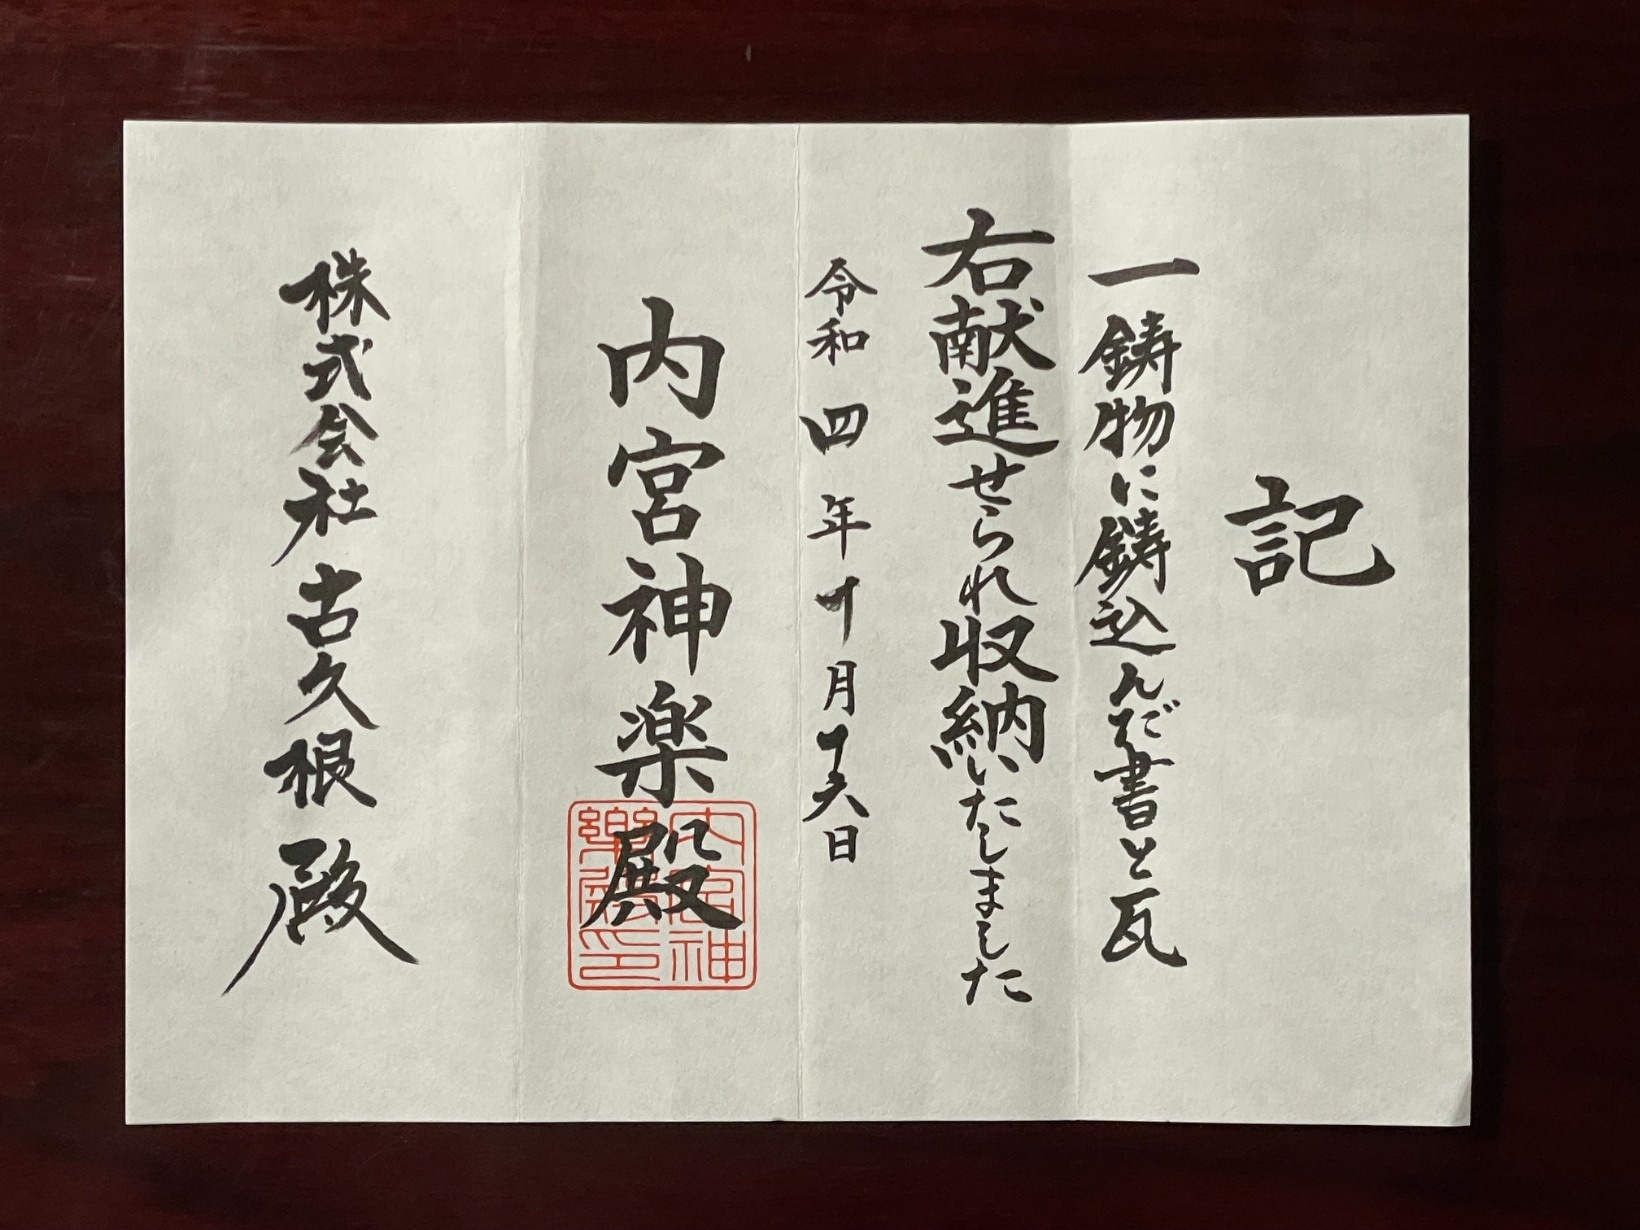 記
一 鋳物に鋳込んだ書と瓦
右献進せられ収納いたしました
令和四年十月十六日
内宮神楽殿
内宮神楽殿印
株式会社古久根殿